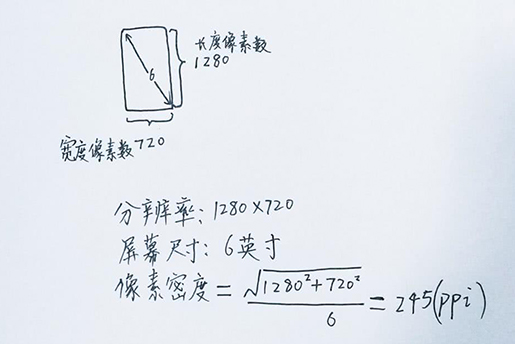 长度像素数
1280
6
宽度像素数720
分辨率：1280×720
屏幕尺寸：6英寸
像素密度=√(1280²+720²)/6=245(ppi)